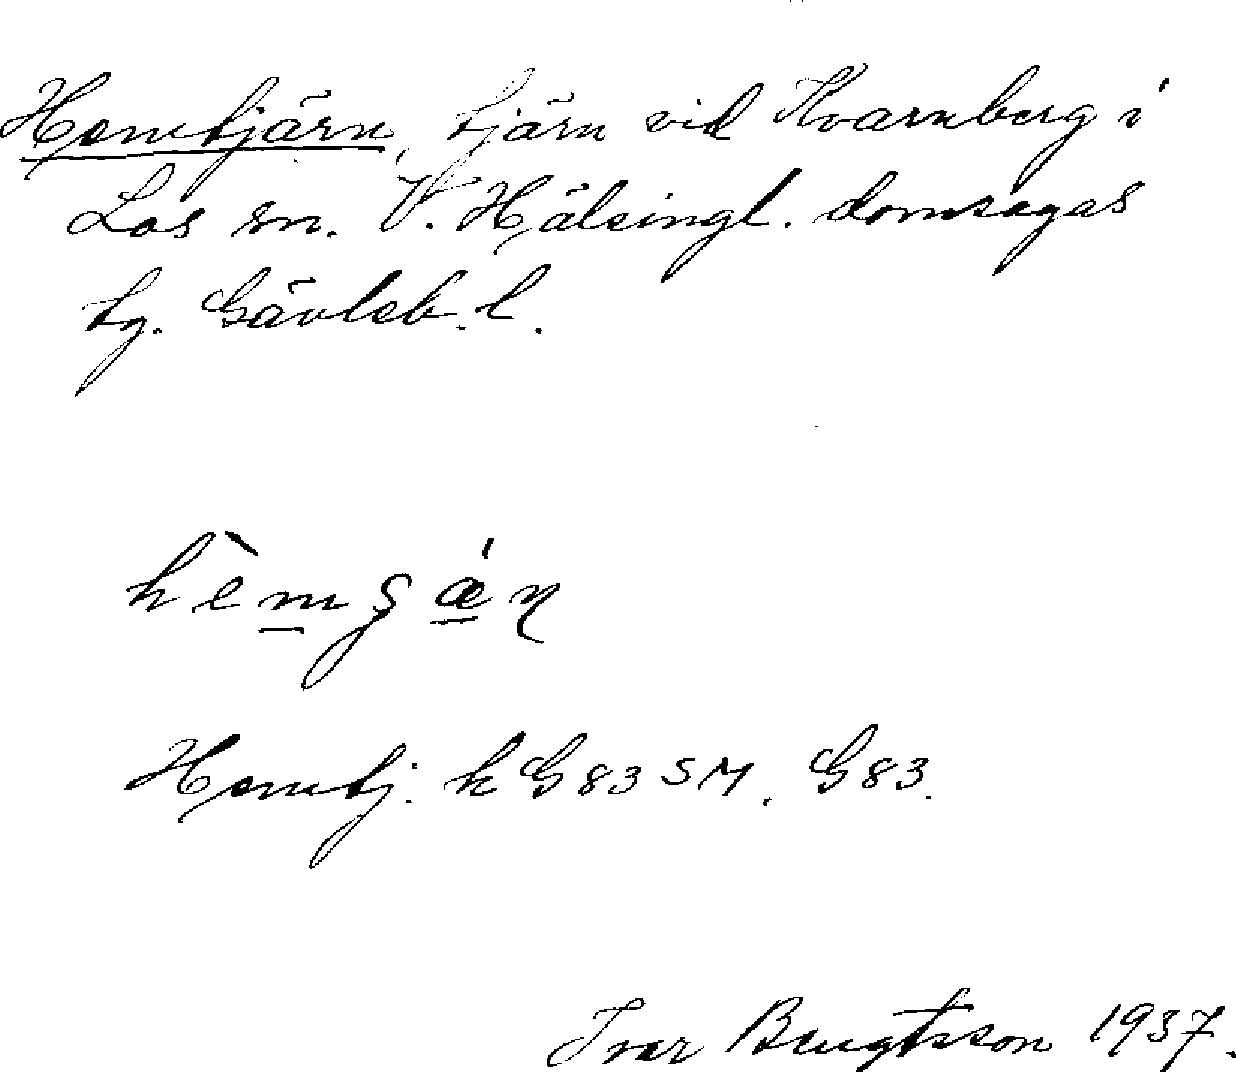 Hemtjärn, tjärn vid Kvarnberg i
Los sn. V. Hälsingl. domsagas
tg. Gävleb. l.
hèmʂæ̀ɳ
Hemtj. k G83 SM. G83.
Ivar Bengtsson 1937.